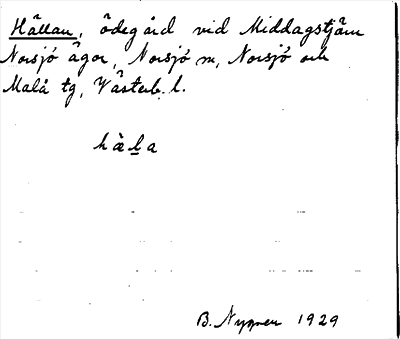 Hällan, ödegård vid Middagstjärn
Norsjö ägor, Norsjö sn, Norsjö och
Malå tg, Västerb. l.
hàl̲a
B. Nygren 1929